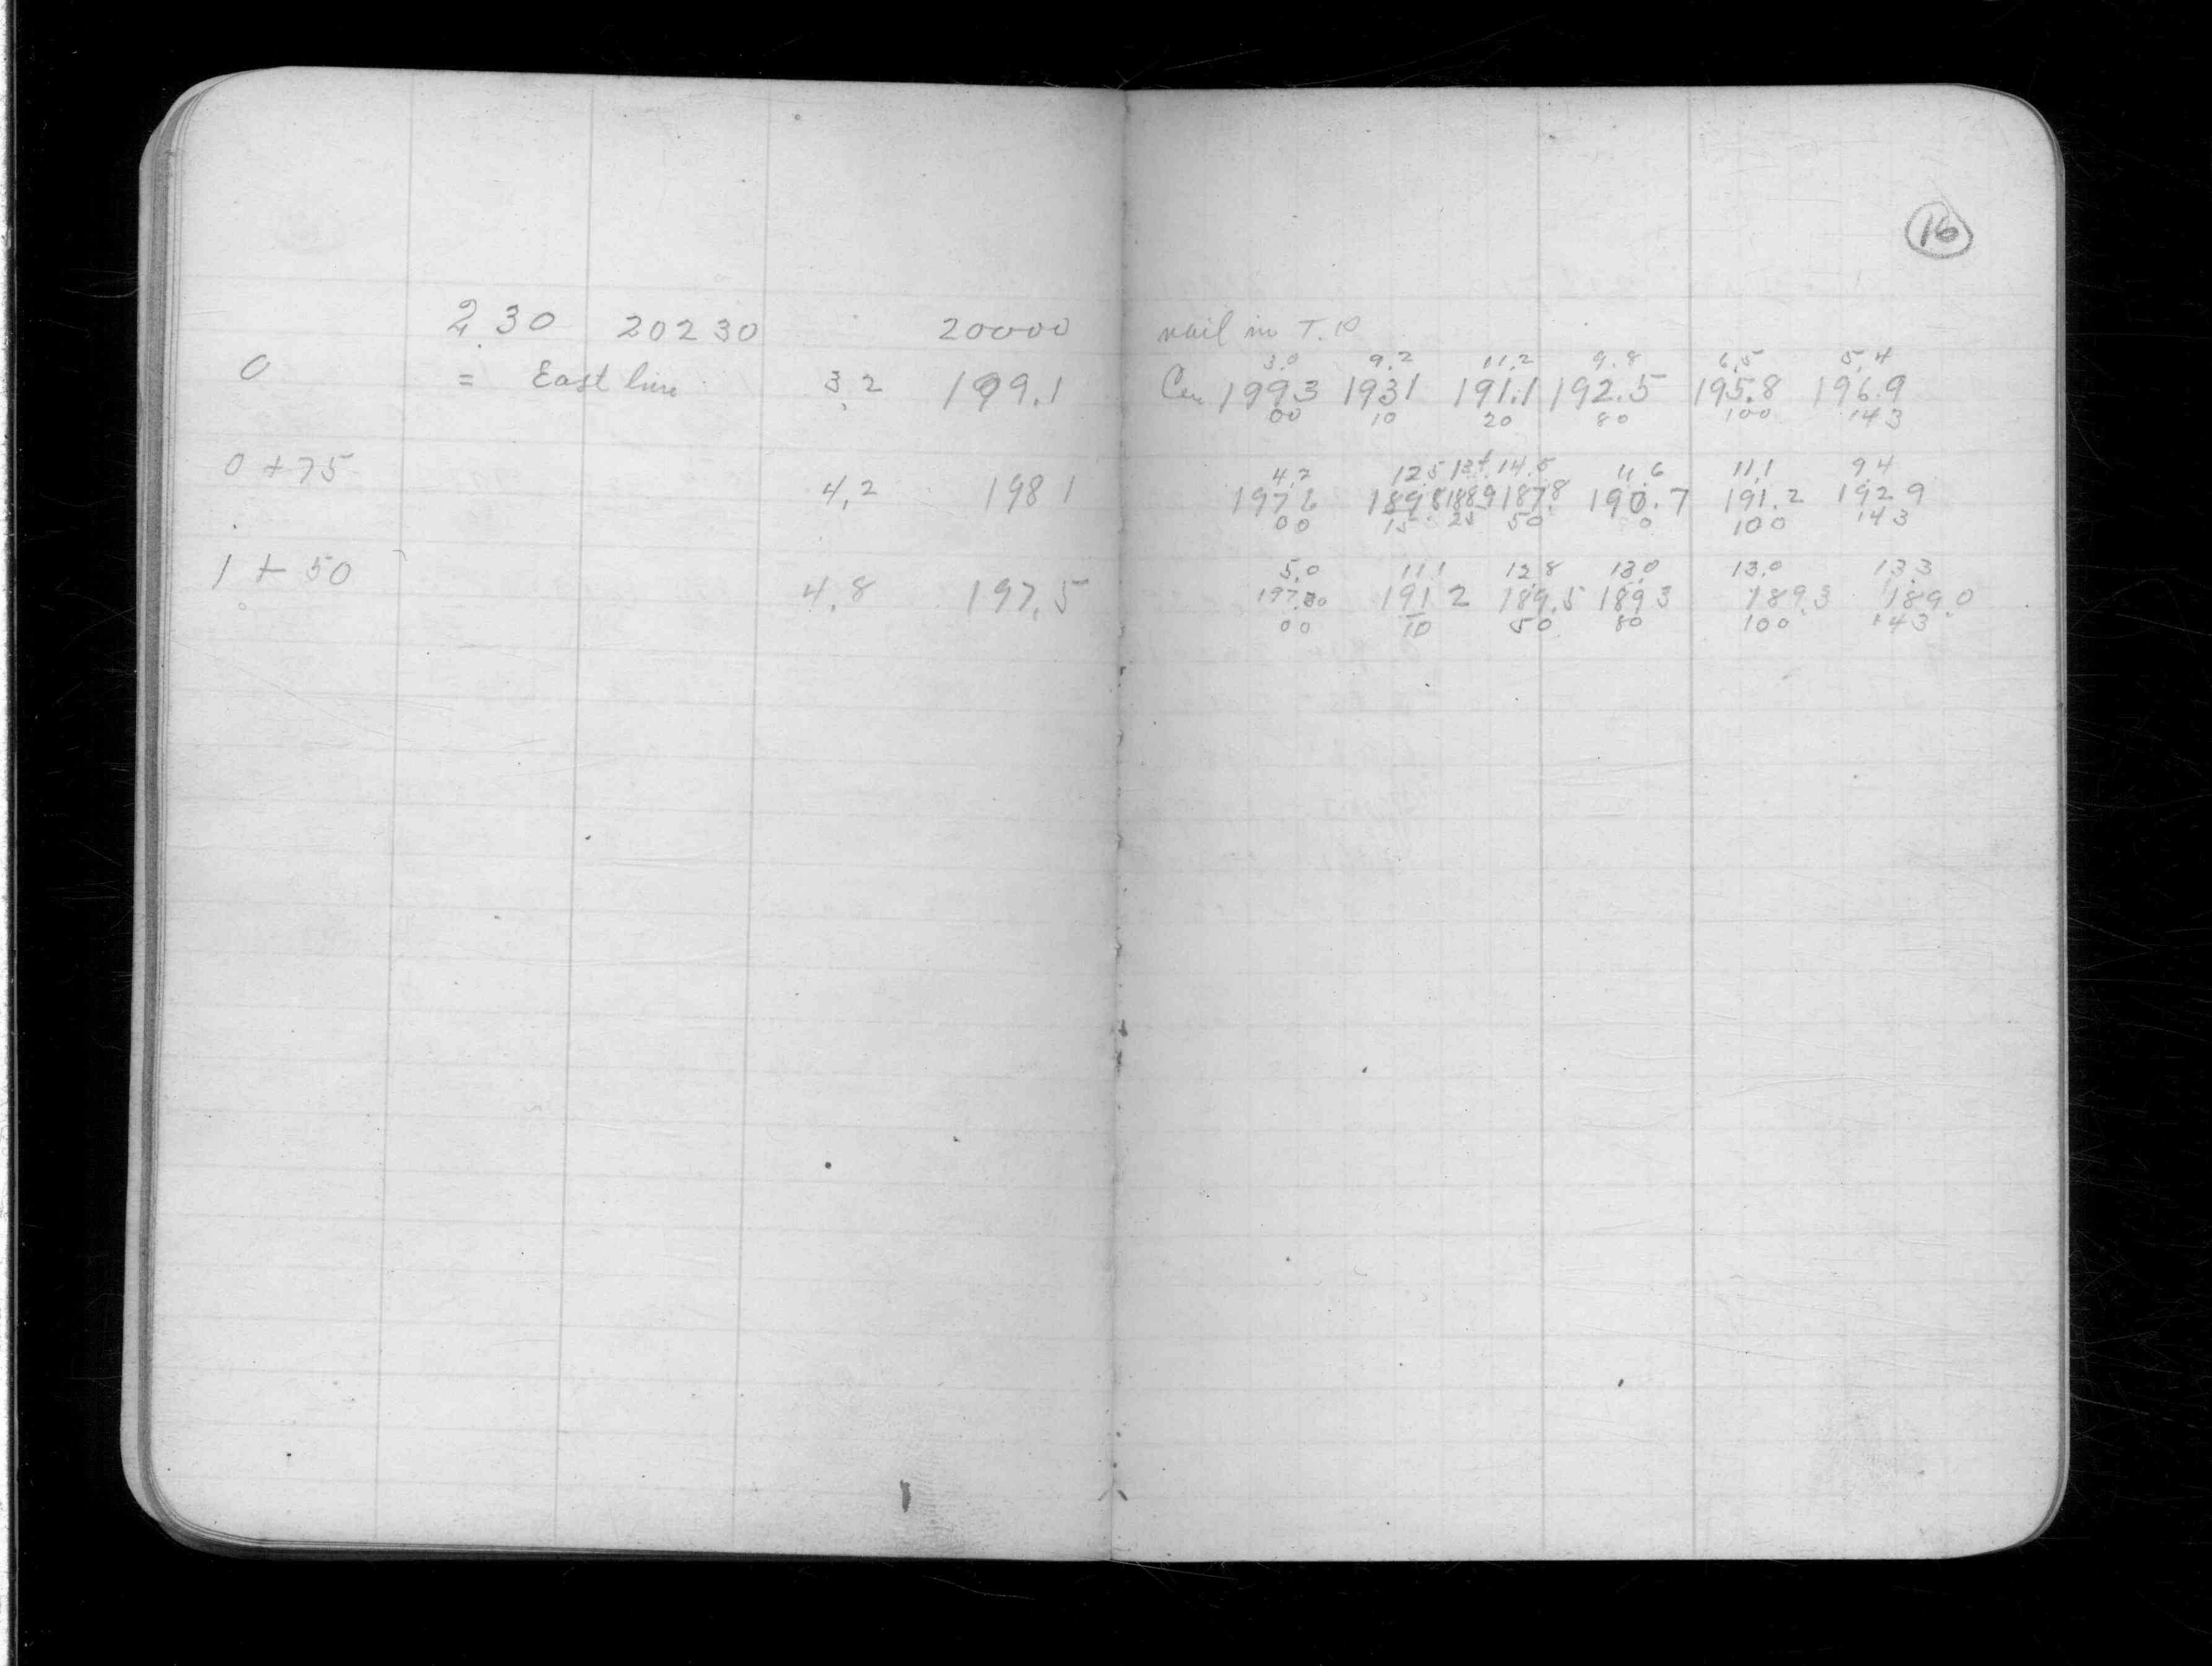 16
2.30 20230 20000 nail in T.P
3.0 9.2 11.2 9.8 6.5 5.4
0 = East line 3.2 199.1 Cen 1993 1931 191.1 192.5 195.8 196.9
00 10 20 80 100 143
4.2 12.5 14.5 11.6 11.1 9.4
0 + 75 4.2 198 1 1898 1889 187.8 190.7 191.2 192 9
00 15 25 50 0 100 143
5.0 11 1 12.8 13.0 13.0 13.3
1 + 50 4.8 197.5 191 2 189.5 189 3 189.3 189.0
00 10 50 80 100 143